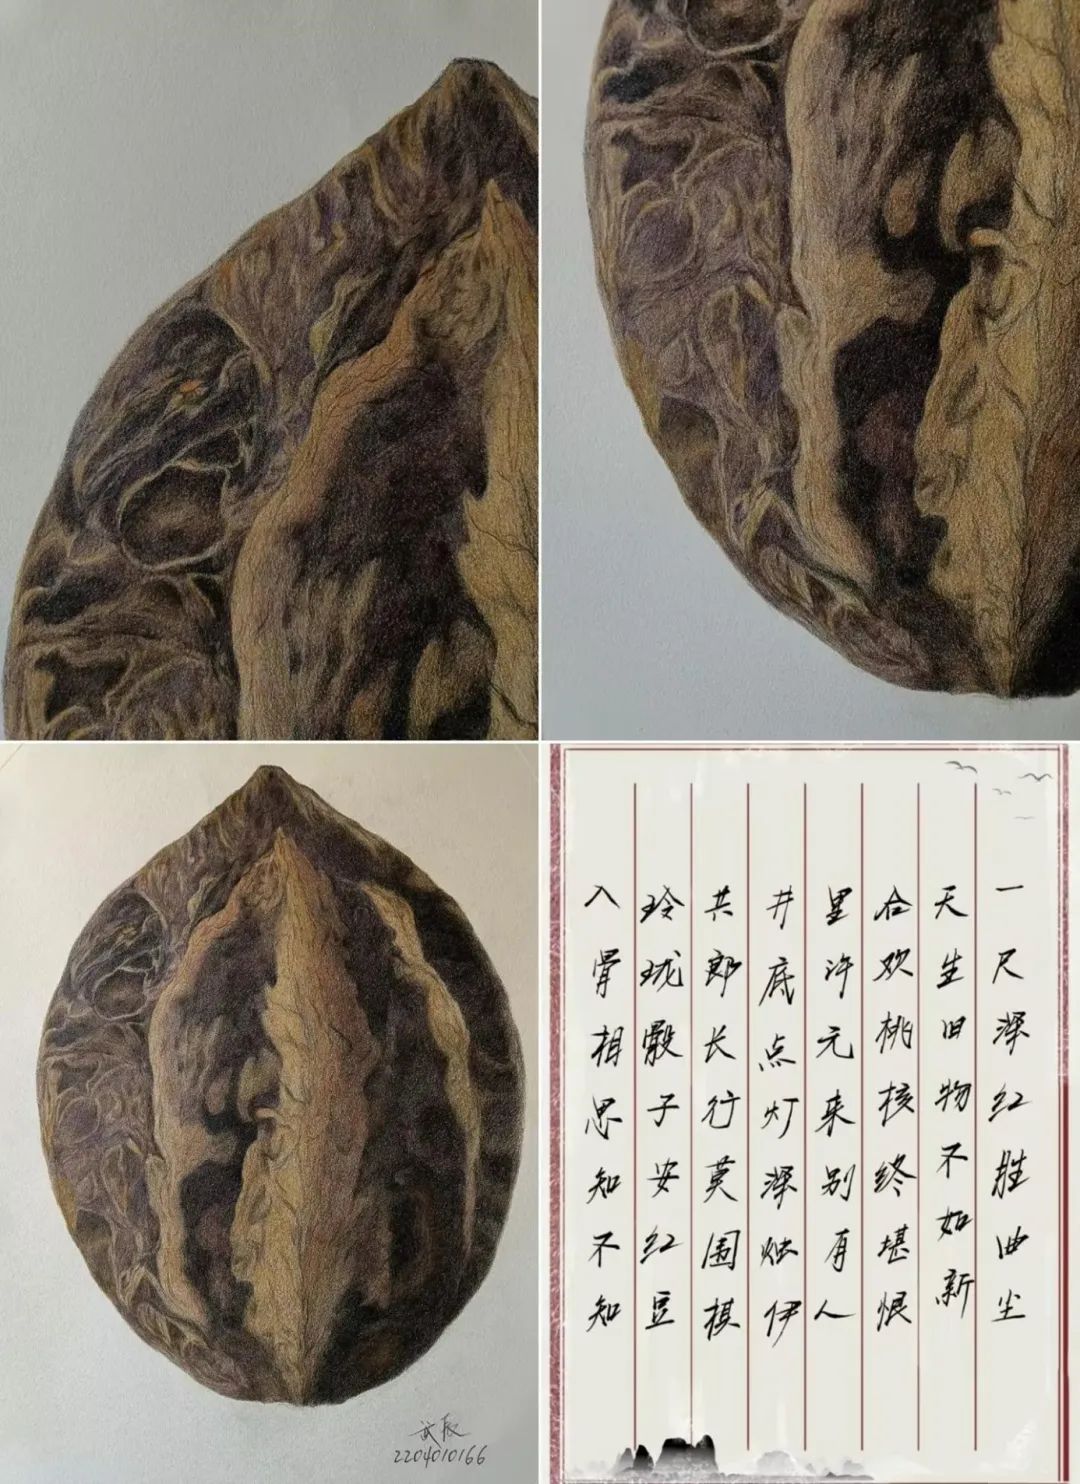 一尺深红胜曲尘
天生旧物不如新
合欢桃核终堪恨
里许元来别有人
井底点灯深烛伊
共郎长行莫围棋
玲珑骰子安红豆
入骨相思知不知
2204010166